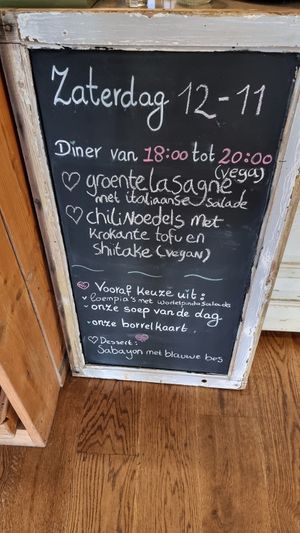 Zaterdag 12-11
Diner van 18:00 tot 20:00
(vega)
groentelasagne
met italiaanse salade
chilinoedels met
krokante tofu en
shiitake (vegan)
Vooraf keuze uit:
• loempia's met wortelpindasalade
• onze soep van de dag
• onze borrelkaart.
Dessert:
Sabayon met blauwe bes